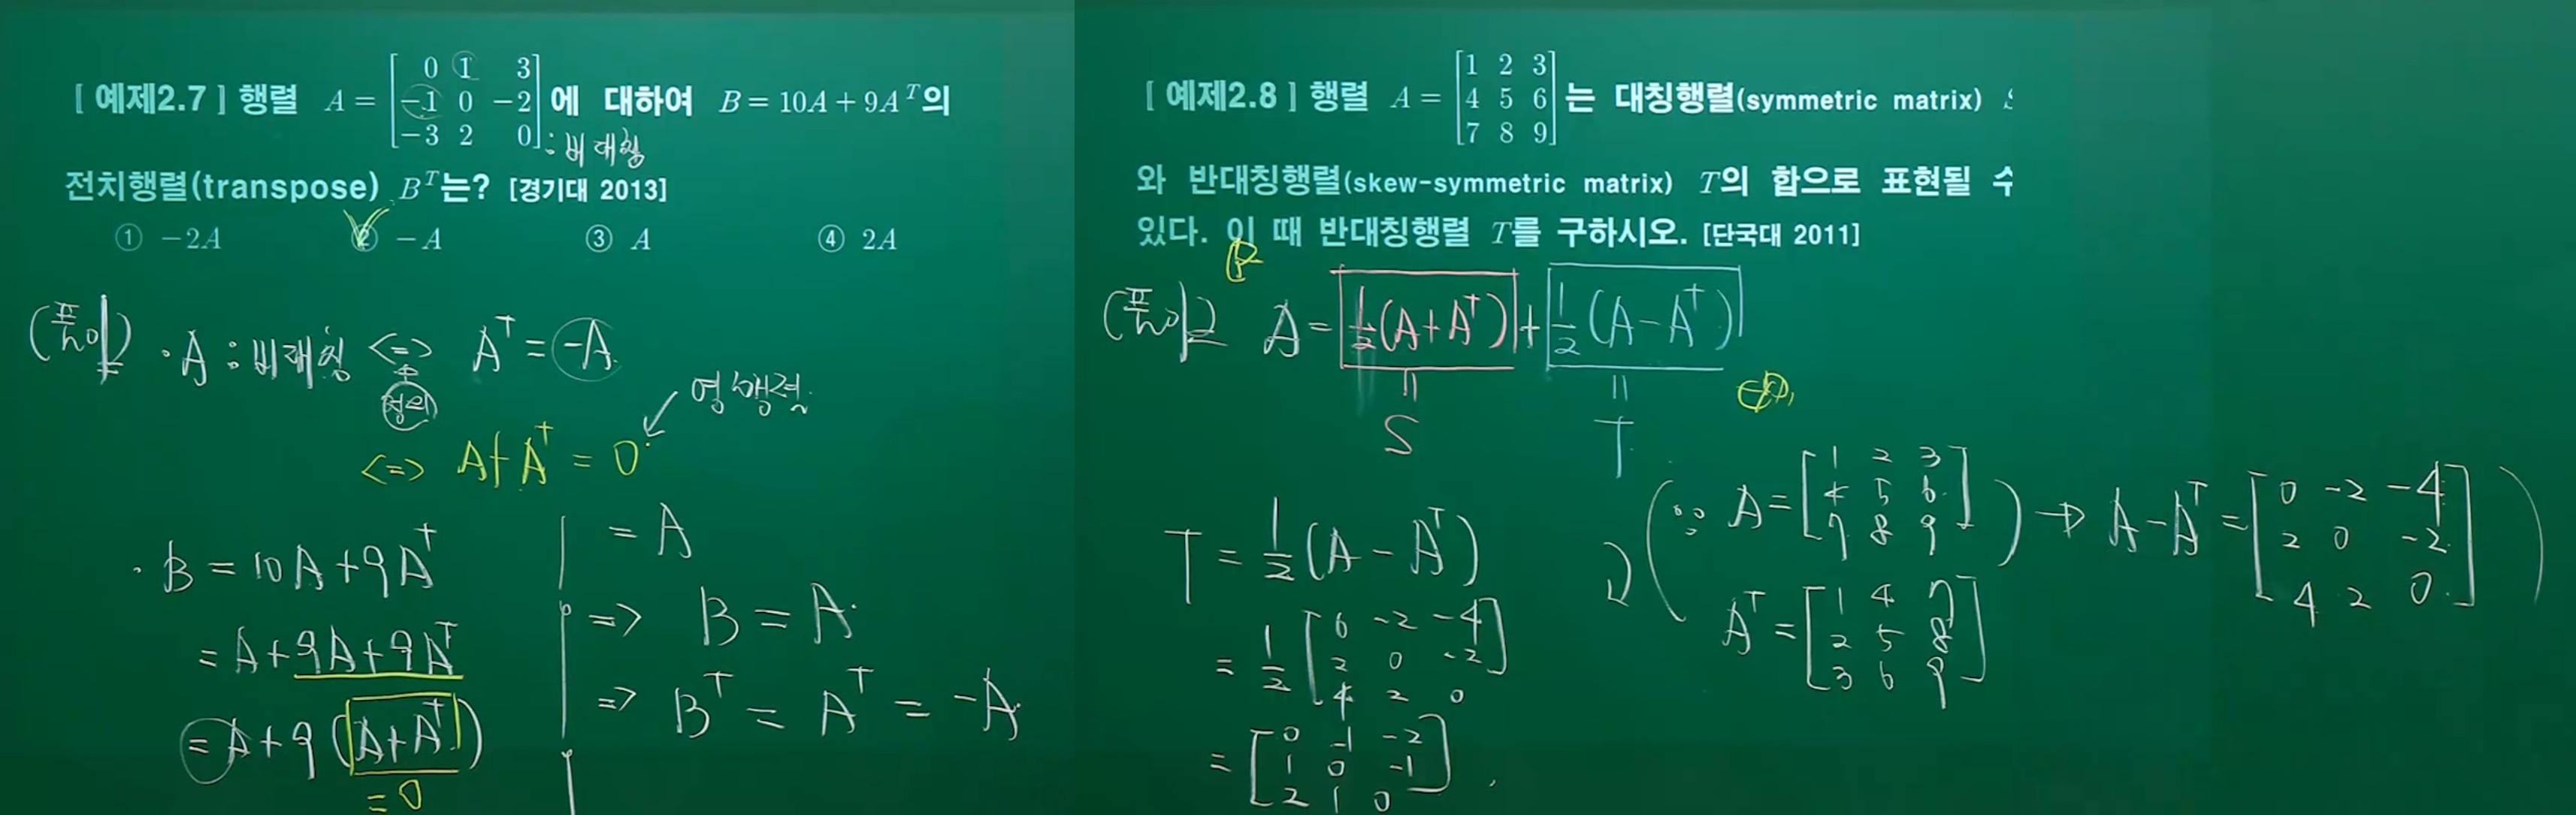 [ 예제2.7 ] 행렬 A = [0 1 3; -1 0 -2; -3 2 0] 에 대하여 B = 10A + 9A^T의
: 반대칭
전치행렬(transpose) B^T는? [경기대 2013]
① -2A ② -A ③ A ④ 2A
(풀이) · A : 반대칭 <=> A^T = -A
정의
<=> A + A^T = 0
영행렬
· B = 10A + 9A^T
= A + 9A + 9A^T
= A + 9(A + A^T)
= 0
= A
=> B = A
=> B^T = A^T = -A
[ 예제2.8 ] 행렬 A = [1 2 3; 4 5 6; 7 8 9] 는 대칭행렬(symmetric matrix)
와 반대칭행렬(skew-symmetric matrix) T의 합으로 표현될 수
있다. 이 때 반대칭행렬 T를 구하시오. [단국대 2011]
(풀이) A = 1/2(A + A^T) + 1/2(A - A^T)
= =
S T
T = 1/2(A - A^T)
= 1/2 [0 -2 -4; 2 0 -2; 4 2 0]
= [0 -1 -2; 1 0 -1; 2 1 0]
(∵ A = [1 2 3; 4 5 6; 7 8 9]
A^T = [1 4 7; 2 5 8; 3 6 9]
) → A - A^T = [0 -2 -4; 2 0 -2; 4 2 0] )